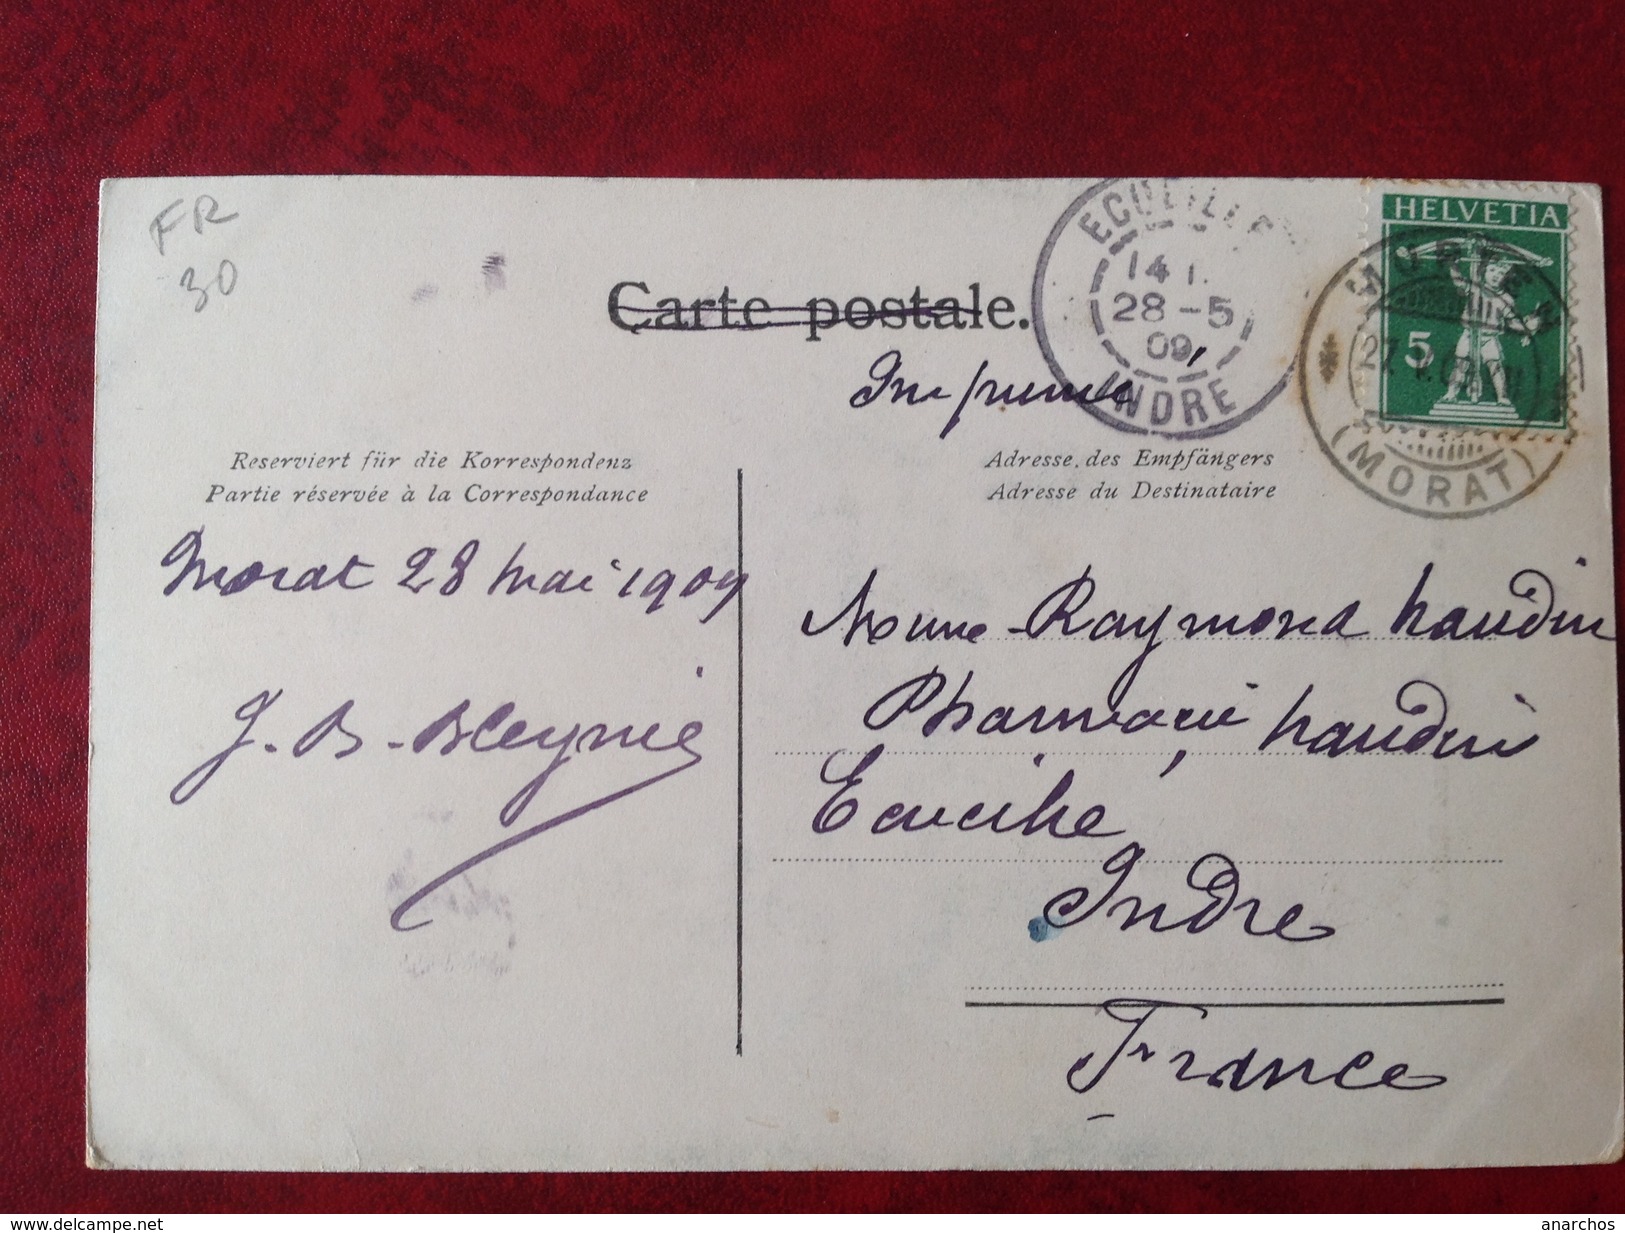 FR
30
Carte postale.
Imprimé
ECUEILLE
14
28-5
09
INDRE
HELVETIA
5
MURTEN
(MORAT)
Reserviert für die Korrespondenz
Partie réservée à la Correspondance
Adresse des Empfängers
Adresse du Destinataire
Morat 28 Mai 1909
J. B. Bleynie
Mme Raymond
Pharmacie
Ecueillé
Indre
France
www.delcampe.net
anarchos